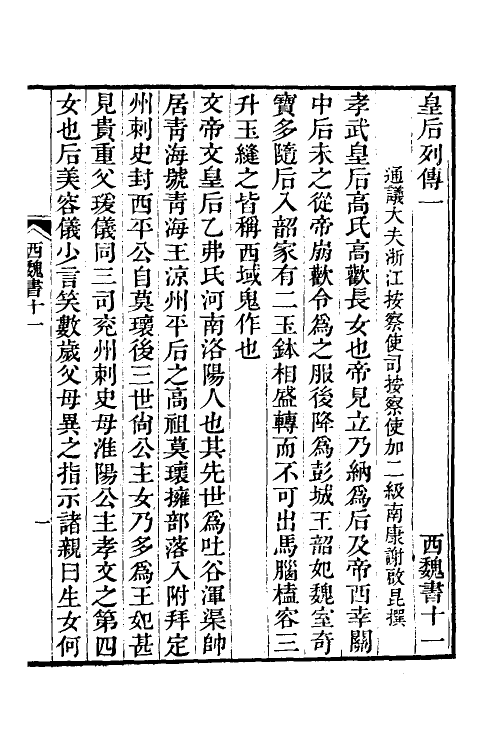 皇后列傳一　西魏書十一
通議大夫浙江按察使司按察使加二級南康謝啟昆撰
孝武皇后高氏高歡長女也帝見立乃納爲后及帝西幸關
中后未之從帝崩歡令爲之服後降爲彭城王韶妃魏室奇
寶多隨后入韶家有二玉鉢相盛轉而不可出馬腦榼客三
升玉縫之皆稱西域鬼作也
文帝文皇后乙弗氏河南洛陽人也其先世爲吐谷渾渠帥
居靑海號靑海王涼州平后之高祖莫瓌擁部落入附拜定
州刺史封西平公自莫瓌後三世尙公主女乃多爲王妃甚
見貴重父瑗儀同三司兖州刺史母淮陽公主孝文之第四
女也后美容儀少言笑數歲父母異之指示諸親曰生女何
西魏書十一
一